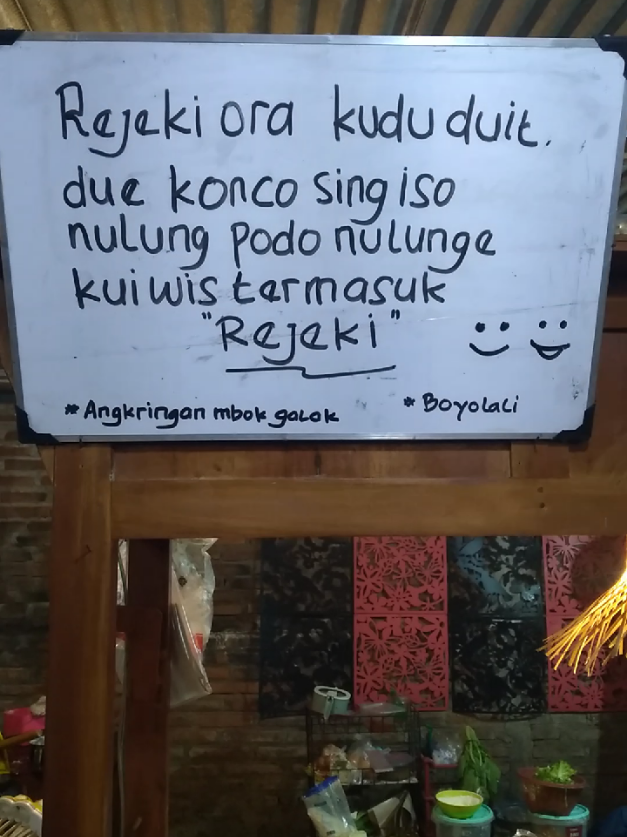 Rejeki ora kudu duit.
due konco sing iso
nulung podo nulunge
kui wis termasuk
"Rejeki"
* Angkringan mbok galak * Boyolali